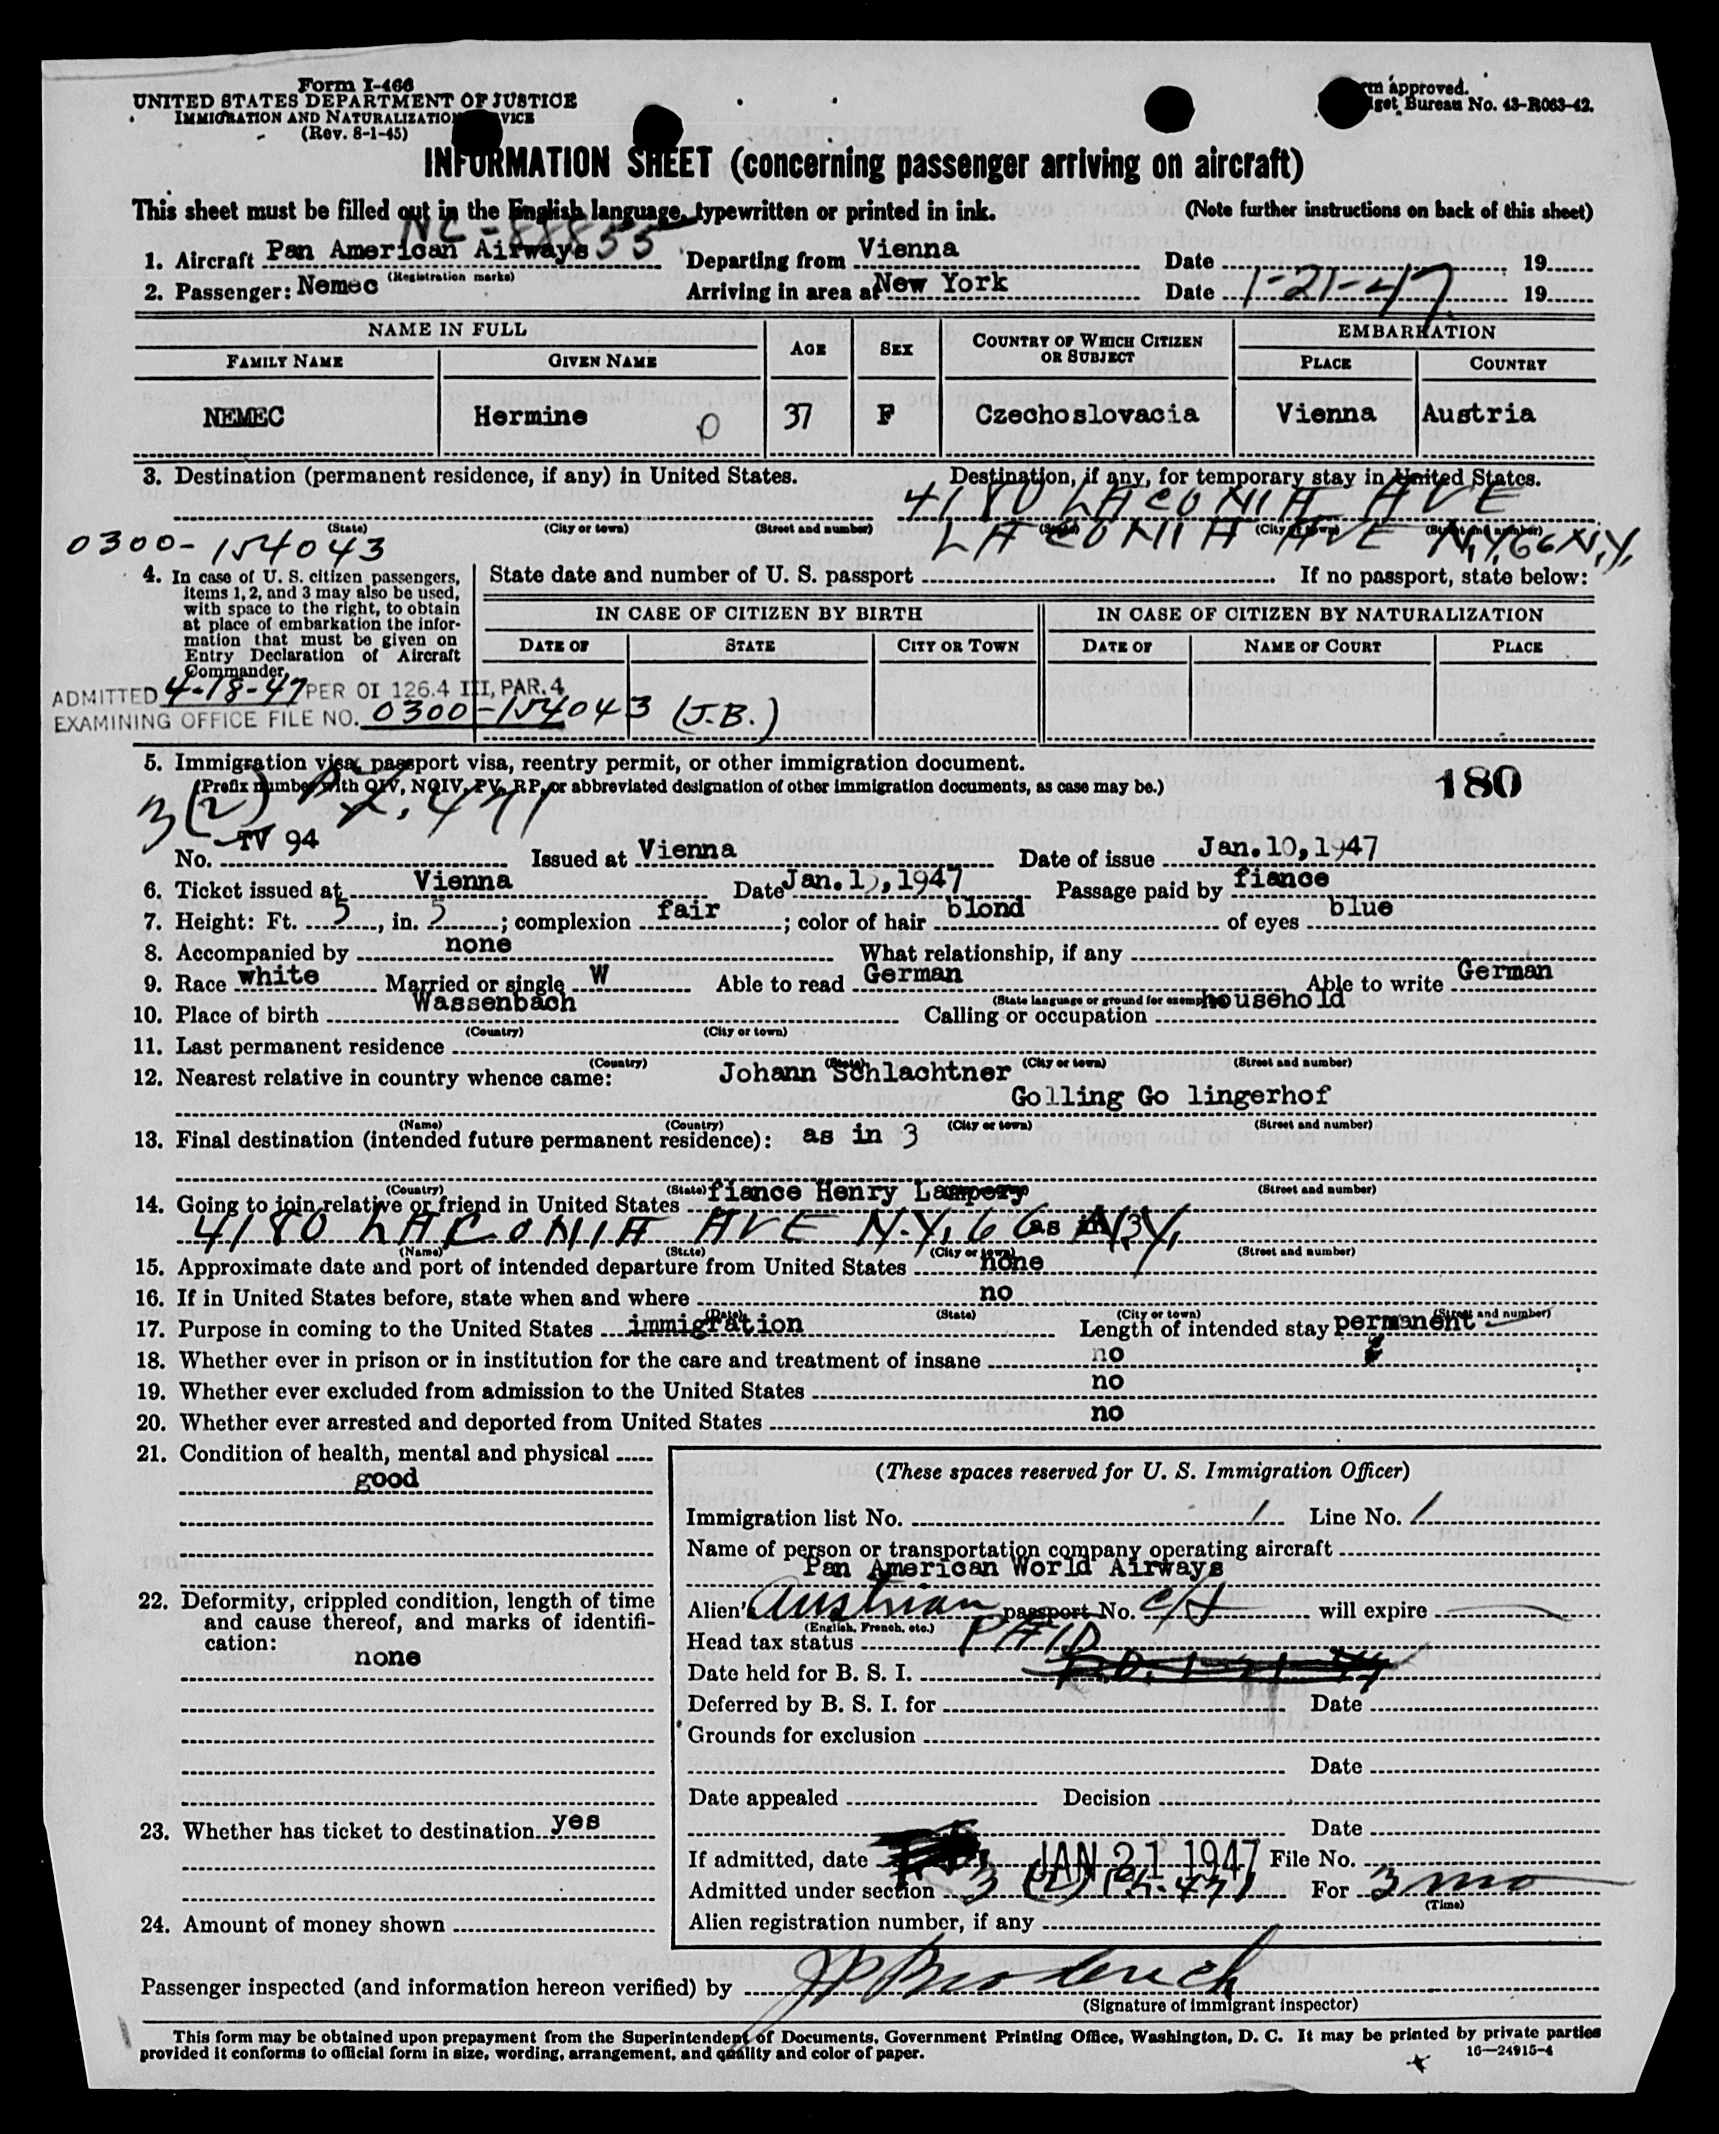 Form I-466
UNITED STATES DEPARTMENT OF JUSTICE
IMMIGRATION AND NATURALIZATION SERVICE
(Rev. 8-1-45)
Form approved.
Budget Bureau No. 43-R063-42.
INFORMATION SHEET (concerning passenger arriving on aircraft)
This sheet must be filled out in the English language, typewritten or printed in ink. (Note further instructions on back of this sheet)
NC-88855
1. Aircraft Pan American Airways Departing from Vienna Date 19
(Registration marks)
2. Passenger: Nemec Arriving in area at New York Date 1-21-47. 19
NAME IN FULL AGE SEX COUNTRY OF WHICH CITIZEN OR SUBJECT EMBARKATION
FAMILY NAME GIVEN NAME PLACE COUNTRY
NEMEC Hermine 0 37 F Czechoslovacia Vienna Austria
3. Destination (permanent residence, if any) in United States. Destination, if any, for temporary stay in United States.
4180 LACONIA AVE
(State) (City or town) (Street and number) (State) (City or town) (Street and number)
0300-154043 LACONIA AVE N.Y. 66 N.Y.
4. In case of U. S. citizen passengers, items 1, 2, and 3 may also be used, with space to the right, to obtain at place of embarkation the information that must be given on Entry Declaration of Aircraft Commander.
State date and number of U. S. passport If no passport, state below:
IN CASE OF CITIZEN BY BIRTH IN CASE OF CITIZEN BY NATURALIZATION
DATE OF STATE CITY OR TOWN DATE OF NAME OF COURT PLACE
ADMITTED 4-18-47 PER OI 126.4 III, PAR. 4
EXAMINING OFFICE FILE NO. 0300-154043 (J.B.)
5. Immigration visa, passport visa, reentry permit, or other immigration document.
(Prefix number with QIV, NQIV, PV, RP, or abbreviated designation of other immigration documents, as case may be.) 180
3(2) P.L. 471
No. TV 94 Issued at Vienna Date of issue Jan. 10, 1947
6. Ticket issued at Vienna Date Jan. 1 , 1947 Passage paid by fiance
7. Height: Ft. 5, in. 5; complexion fair; color of hair blond of eyes blue
8. Accompanied by none What relationship, if any
9. Race white Married or single W Able to read German Able to write German
(State language or ground for exemption)
10. Place of birth Wassenbach Calling or occupation household
(Country) (City or town)
11. Last permanent residence
(Country) (State) (City or town) (Street and number)
12. Nearest relative in country whence came: Johann Schlachtner
Golling Go lingerhof
(Name) (Country) (City or town) (Street and number)
13. Final destination (intended future permanent residence): as in 3
(Country) (State) (Street and number)
14. Going to join relative or friend in United States fiance Henry
4180 LACONIA AVE N.Y. 66 as in 3 N.Y.
(Name) (State) (City or town) (Street and number)
15. Approximate date and port of intended departure from United States none
16. If in United States before, state when and where no
(Date) (State) (City or town) (Street and number)
17. Purpose in coming to the United States immigration Length of intended stay permanent
18. Whether ever in prison or in institution for the care and treatment of insane no
19. Whether ever excluded from admission to the United States no
20. Whether ever arrested and deported from United States no
21. Condition of health, mental and physical
good
22. Deformity, crippled condition, length of time and cause thereof, and marks of identification:
none
23. Whether has ticket to destination yes
24. Amount of money shown
(These spaces reserved for U. S. Immigration Officer)
Immigration list No. 1 Line No. 1
Name of person or transportation company operating aircraft
Pan American World Airways
Alien's Austrian passport No. will expire
(English, French, etc.)
Head tax status PAID
Date held for B. S. I.
Deferred by B. S. I. for Date
Grounds for exclusion
Date
Date appealed Decision
Date
If admitted, date JAN 21 1947 File No.
Admitted under section 3(2) PL-471 For 3 mo
(Time)
Alien registration number, if any
Passenger inspected (and information hereon verified) by
(Signature of immigrant inspector)
This form may be obtained upon prepayment from the Superintendent of Documents, Government Printing Office, Washington, D. C. It may be printed by private parties
provided it conforms to official form in size, wording, arrangement, and quality and color of paper. 16—24915-4